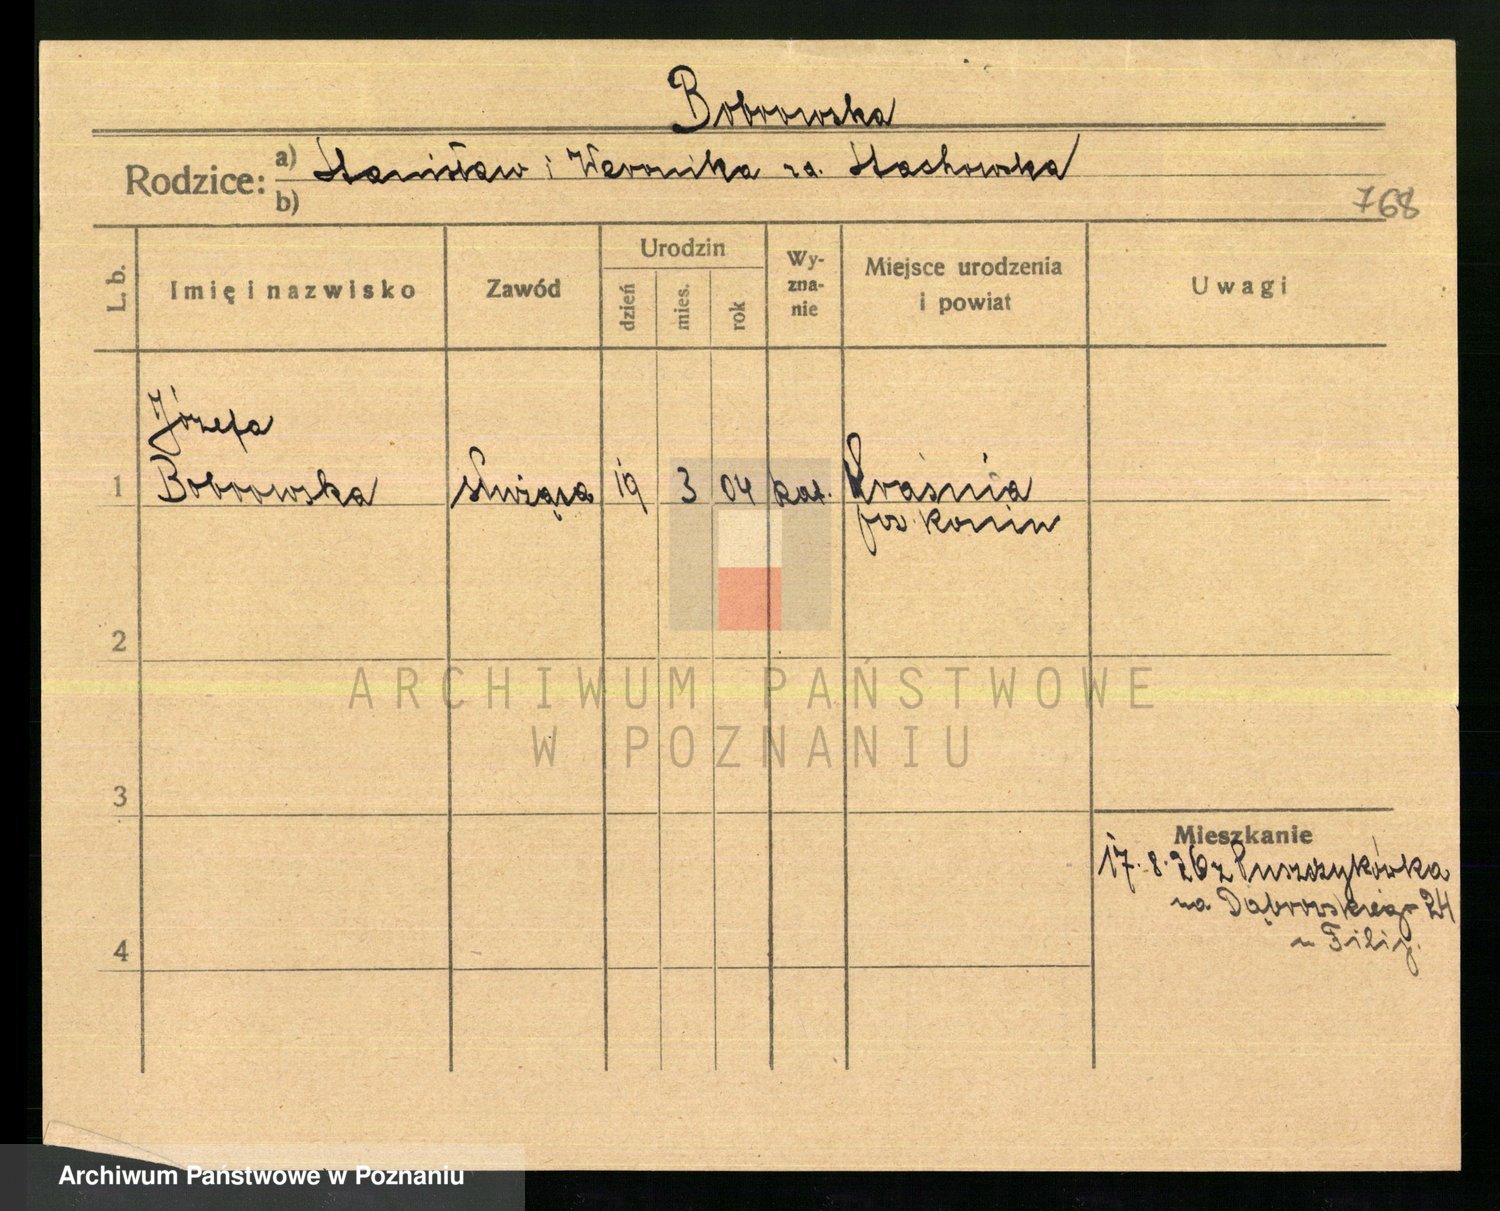 Bobrowska
Rodzice: a) Stanisław i Weronika za. Stachowska
b)
768
L. b. Imię i nazwisko Zawód Urodzin dzień mies. rok Wy-zna-nie Miejsce urodzenia i powiat Uwagi
Józefa
1 Bobrowska służąca 19 3 04 kat. Kraśnia
pow Konin
2
ARCHIWUM PAŃSTWOWE
W POZNANIU
3
Mieszkanie
17. 8. 26 z Puszczykówka
na Dąbrowskiego 24
4
Archiwum Państwowe w Poznaniu